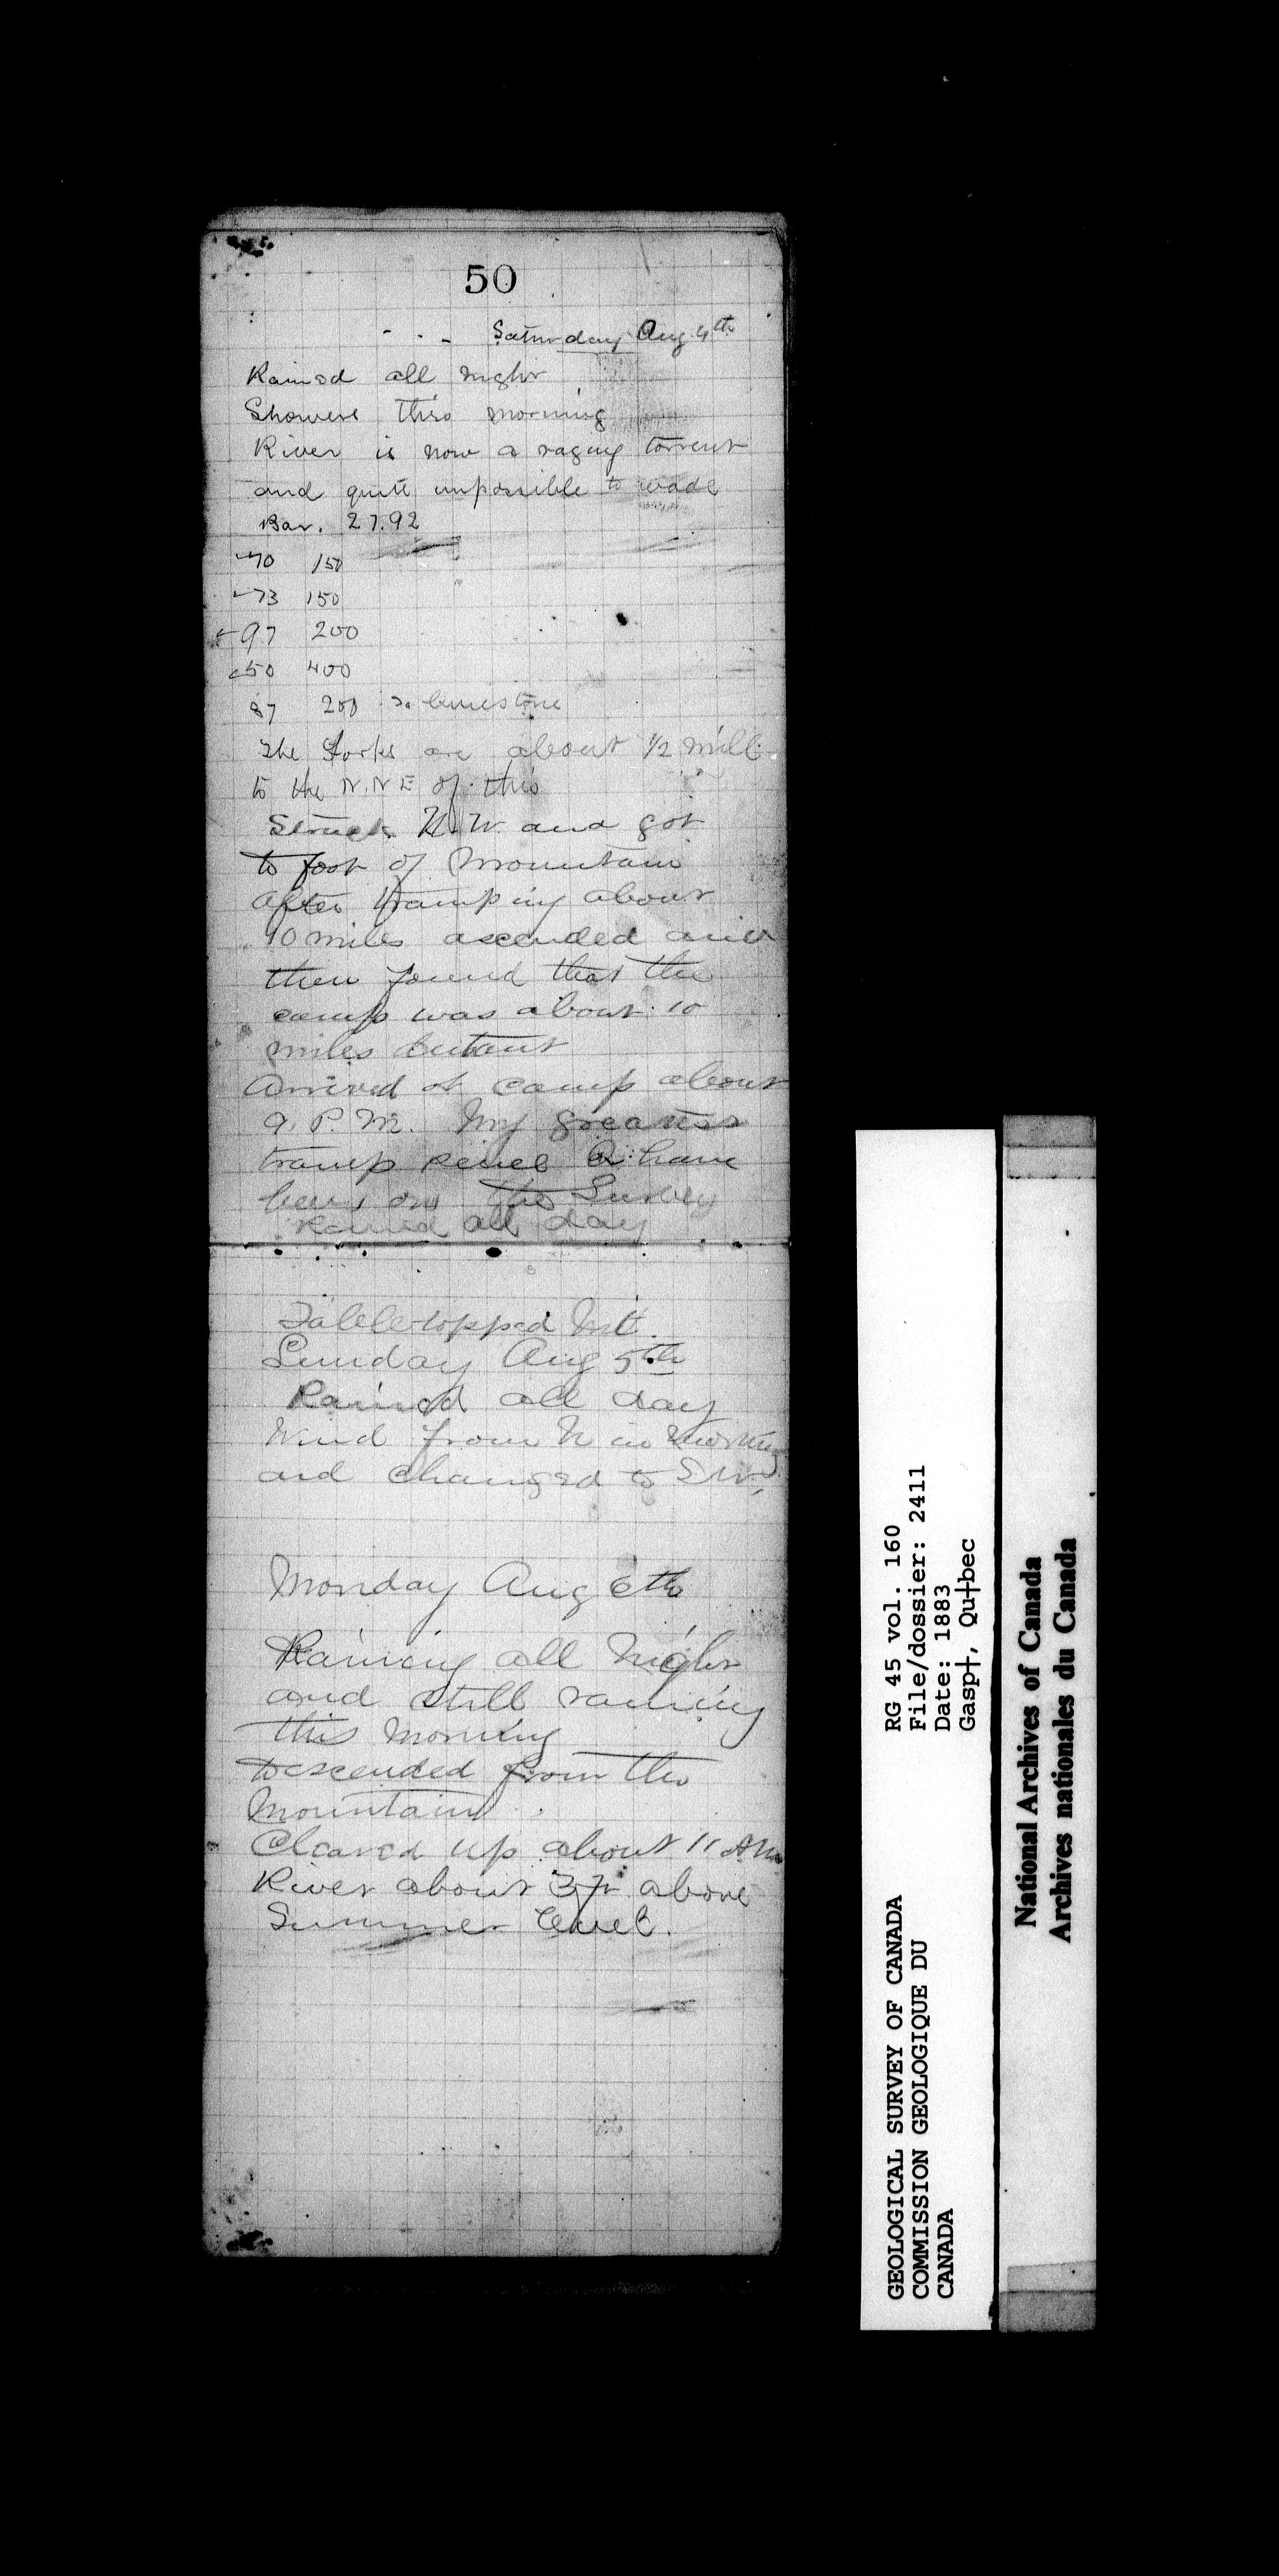 50
Saturday Aug 4th
Rained all night
Showers this morning
River is now a raging torrent
and quite impossible to wade
Bar. 27.92
70 150
73 150
97 200
50 400
87 200 limestone
The Forks are about 1/2 mile
to the N.N.E of this
Struck N.W. and got
to foot of Mountain
after tramping about
10 miles ascended and
then found that the
camp was about 10
miles distant
Arrived at camp about
9. P.M. My greatest
tramp since I have
been on the Survey
Rained all day
Tabletopped Mt.
Sunday Aug 5th
Rained all day
Wind from N in morning
and changed to S.W.
Monday Aug 6th
Raining all night
and still raining
this morning
Descended from the
Mountain
Cleared up about 11 AM
River about 3 ft above
Summer level.
GEOLOGICAL SURVEY OF CANADA
COMMISSION GEOLOGIQUE DU
CANADA
RG 45 vol. 160
File/dossier: 2411
Date: 1883
Gasp†, Qu†bec
National Archives of Canada
Archives nationales du Canada